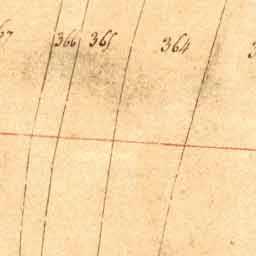 366 365 364